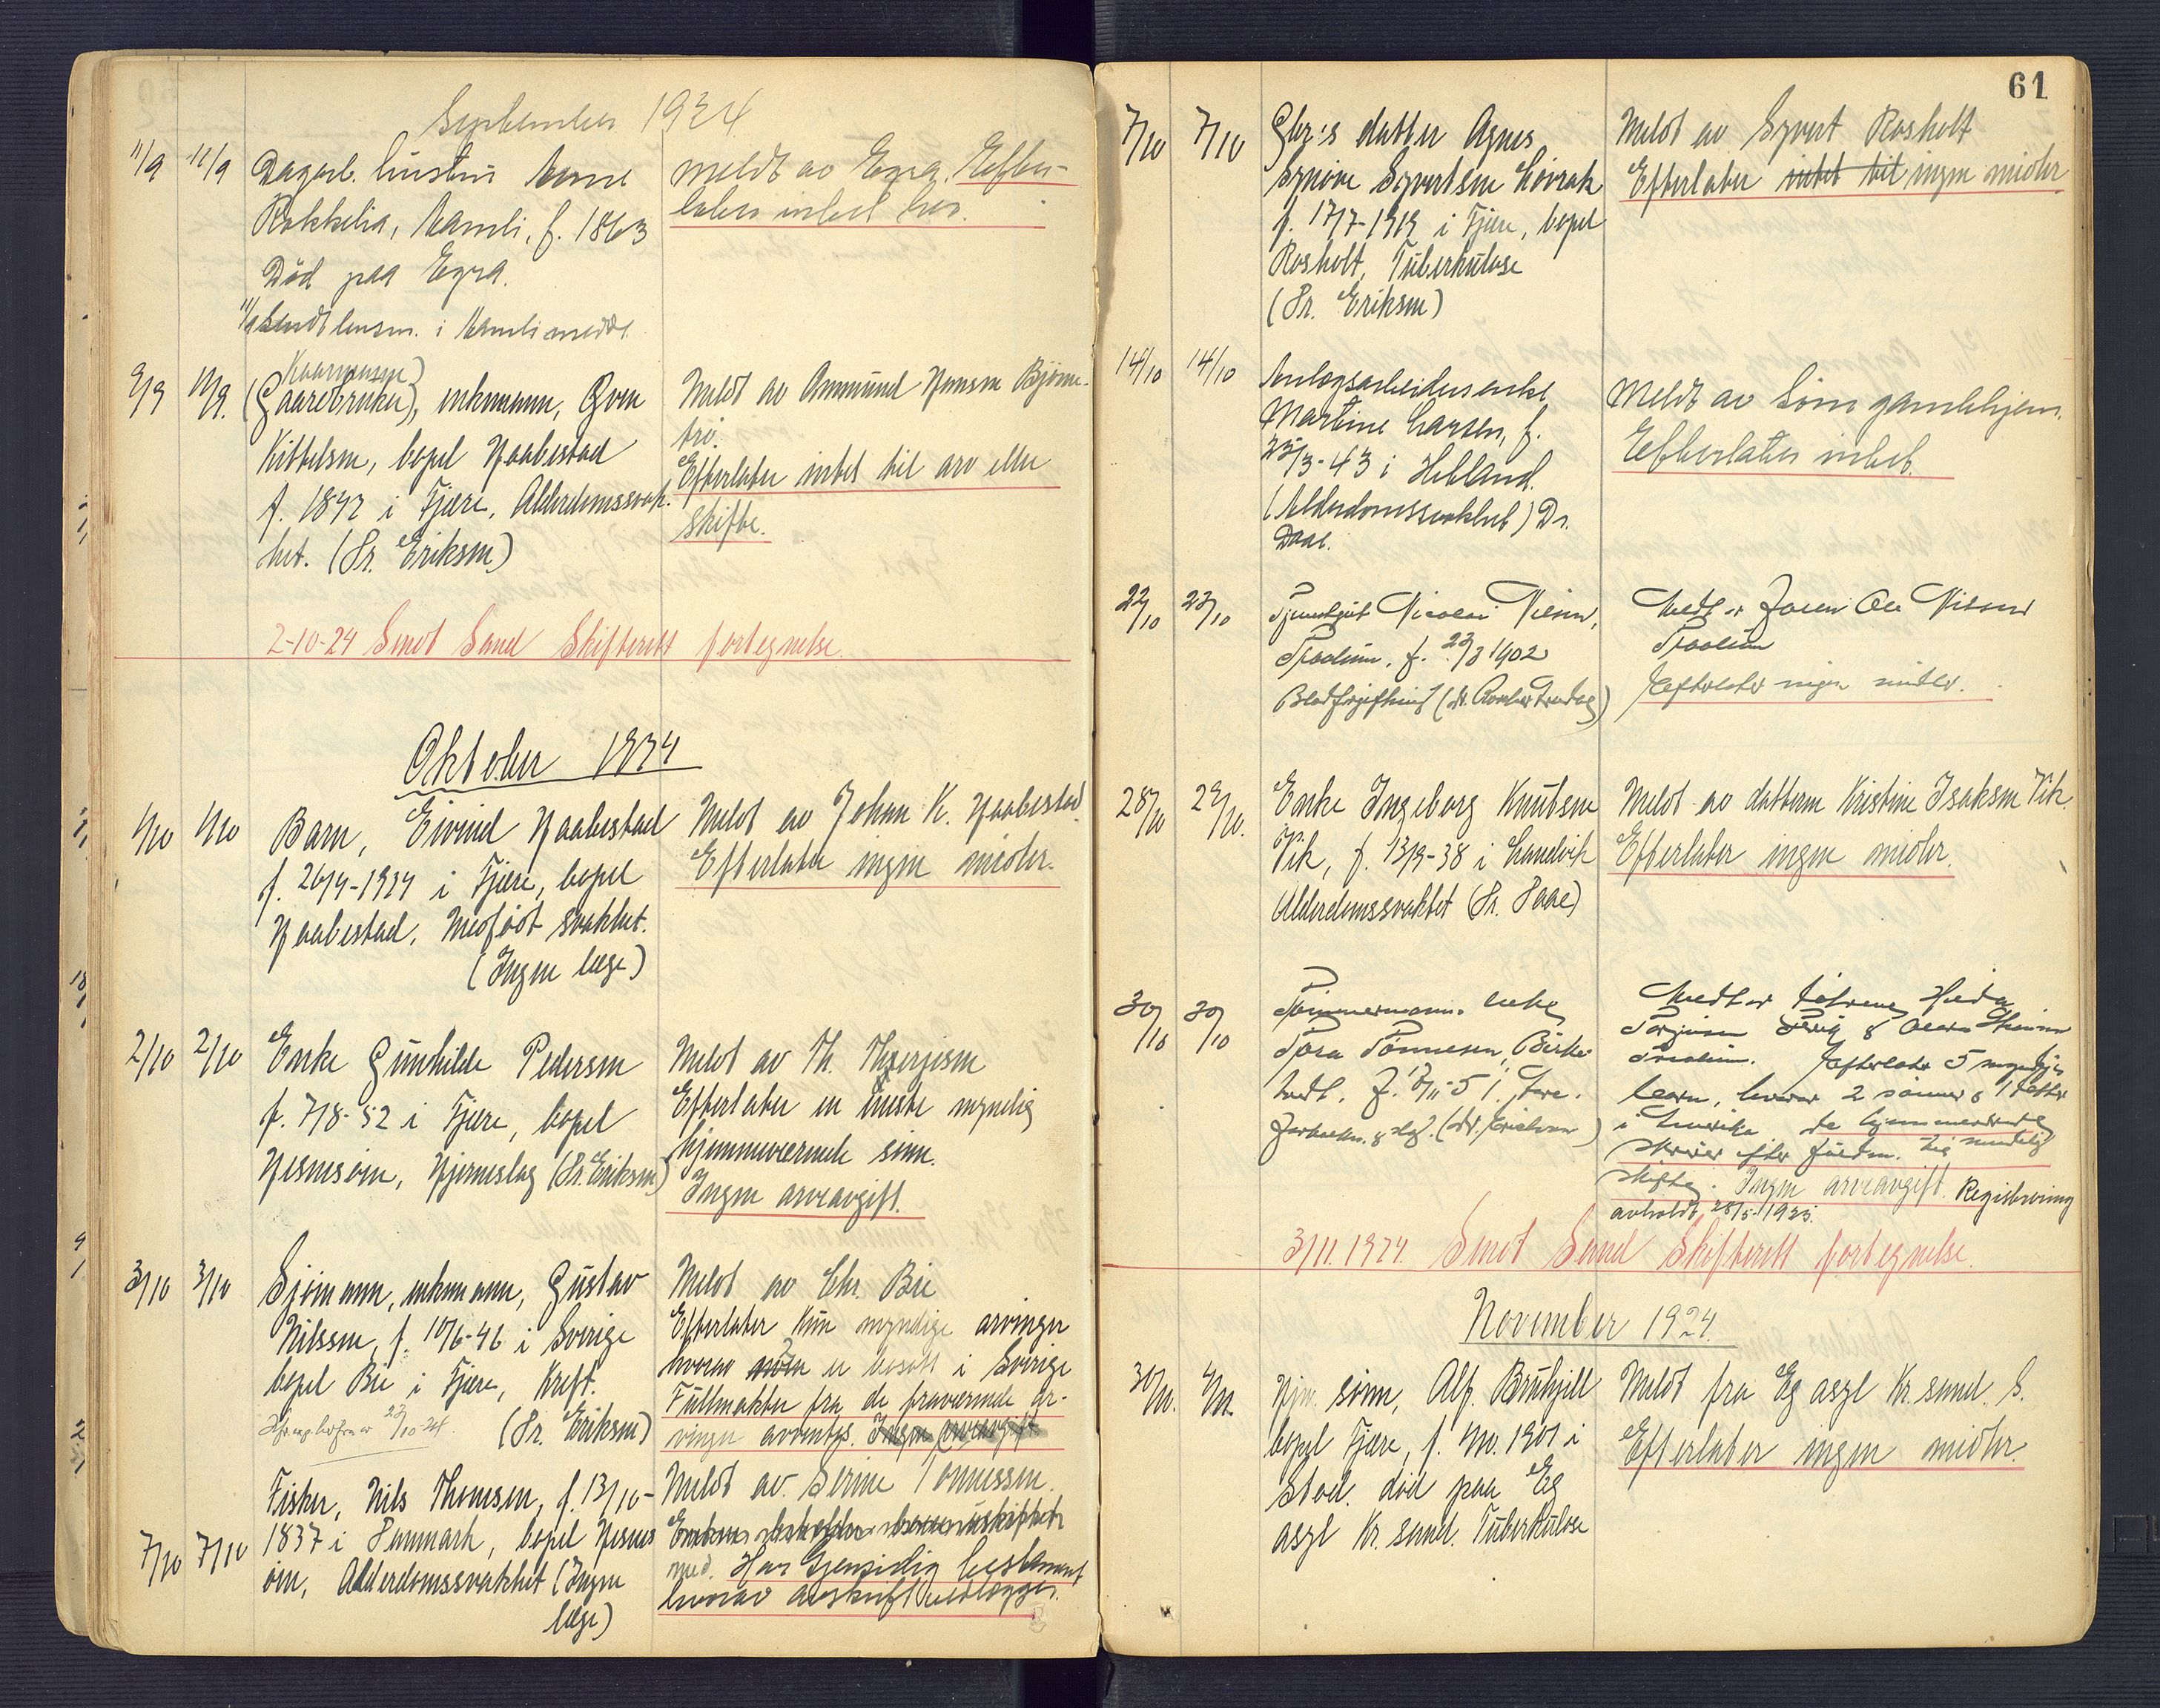 September 1924
11/9 11/9 Dagarb. hustru Anne
Rokkelia, Aamli, f. 1863
Död paa Egra.
11/9 sendt lensm. i Aamli medd.
meldt av Egra. Efter-
later intet her.
9/9 10/9. (Gaardbruker), enkemann, Even
Kittelsen, bopel Haabestad
f. 1842 i Fjære, Alderdomssvak-
het. (Dr. Eriksen)
Meldt av Ammund Hansen Bjönn-
trö.
Efterlater intet til arv eller
skifte.
2-10-24 Sendt Sand Skifterett fortegnelse.
Oktober 1924
1/10 1/10 Barn, Eivind Haabestad
f. 26/9-1924 i Fjære, bopel
Haabestad, Medfödt svakhet.
(Ingen læge)
Meldt av Johan K. Haabestad.
Efterlater ingen midler.
2/10 2/10 Enke Gunhilde Pedersen
f. 7/8-52 i Fjære, bopel
Hesnesöen, Hjerneslag (Dr. Eriksen)
Meldt av Th. Therjesen
Efterlater en eneste myndig
hjemmeværende sönn.
Ingen arveavgift.
3/10 3/10 Sjömann, enkemann, Gustav
Nilssen, f. 10/6-46 i Sverige
bopel Bie i Fjære, Kreft.
(Dr. Eriksen)
23/10-24.
Meldt av Chr. Bie
Efterlater kun myndige arvinger
hvorav er bosatt i Sverige
Fullmakter fra de fraværende ar-
vinger avventes. Ingen arveavgift
7/10 7/10 Fisker, Nils Thomesen, f. 13/10-
1837 i Danmark, bopel Hesnes
öen, Alderdomssvakhet (Ingen
læge)
Meldt av Serine Tomessen.
Enken beholder boet uskiftet
med. Har Gjensidig testament
hvorav avskrift vedlegges.
61
7/10 7/10 Gbr's datter Agnes
Synöve Syvertsen Lövrak
f. 17/7-1919 i Fjære, bopel
Rosholt, Tuberkulose
(Dr. Eriksen)
Meldt av Syvert Rosholt
Efterlater intet til ingen midler
14/10 14/10 Anlægsarbeidersenke
Martine Larsen, f.
25/3-43 i Hetland.
(Alderdomssvakhet) Dr.
Daae.
Meldt av Söm gamlehjem.
Efterlater intet.
22/10 23/10 Nicolai Nilsen,
f. 23/3 1902
Blodforgiftning
Meldt av Faren Ole Nilsen
Efterlater ingen midler.
28/10 29/10. Enke Ingeborg Knutsen
Vik, f. 13/9-38 i Landvik
Alderdomssvakhet (Dr. Daae)
Meldt av datteren Kristine Isaksen Vik.
Efterlater ingen midler.
30/10 30/10 Tömmermanns enke
Tora Tönnesen, Birke-
tvedt. f.
(Dr. Erichsen)
Meldt av
Efterlater 5 myndige
barn, hvorav 2 sönner & 1 datter
i Amerika de hjemmeværende
skriver efter fuldm. til mindelig
skifte. Ingen arveavgift. Registrering
avholdt 28/5-1925.
3/11.1924. Sendt Sand Skifterett fortegnelse.
November 1924.
30/10. 4/11. sönn, Alf. Bruhjell
bopel Fjære, f. 1901 i
Stod. död paa Eg
asyl Kr.sand. Tuberkulose
Meldt fra Eg asyl Kr.sand. S.
Efterlater ingen midler.